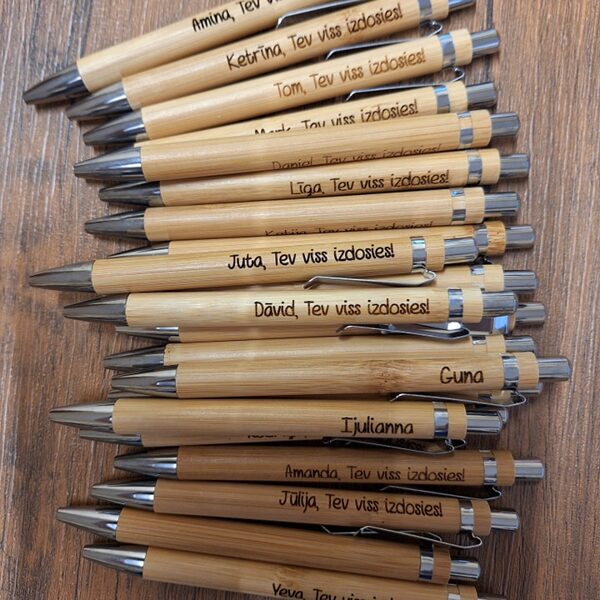 Amina, Tev viss
Ketrīna, Tev viss izdosies!
Tom, Tev viss izdosies!
Mark, Tev viss izdosies!
Daniel, Tev viss izdosies!
Līga, Tev viss izdosies!
Tev viss izdosies!
Juta, Tev viss izdosies!
Dāvid, Tev viss izdosies!
Guna
Ijulianna
Amanda, Tev viss izdosies!
Jūlija, Tev viss izdosies!
Yeva, Tev viss izdosies!